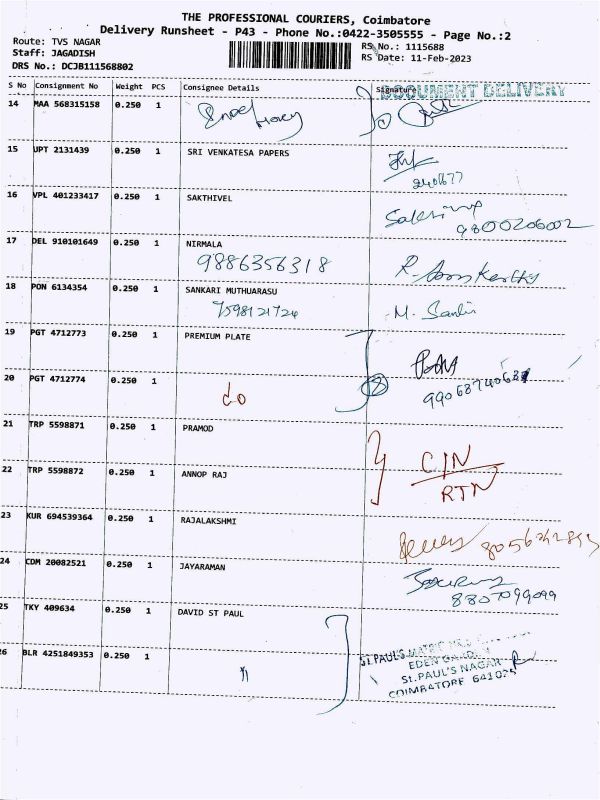 THE PROFESSIONAL COURIERS, Coimbatore
Delivery Runsheet - P43 - Phone No.:0422-3505555 - Page No.:2
Route: TVS NAGAR
Staff: JAGADISH
DRS No.: DCJB111568802
RS No.: 1115688
RS Date: 11-Feb-2023
S No Consignment No Weight PCS Consignee Details Signature
DOCUMENT DELIVERY
14 MAA 568315158 0.250 1
15 UPT 2131439 0.250 1 SRI VENKATESA PAPERS
240677
16 VPL 401233417 0.250 1 SAKTHIVEL
9800206002
17 DEL 910101649 0.250 1 NIRMALA
9886356318
18 PON 6134354 0.250 1 SANKARI MUTHUARASU
7598121724 M.
19 PGT 4712773 0.250 1 PREMIUM PLATE
20 PGT 4712774 0.250 1
do
21 TRP 5598871 0.250 1 PRAMOD
C/N
22 TRP 5598872 0.250 1 ANNOP RAJ
RTN
23 KUR 694539364 0.250 1 RAJALAKSHMI
24 CDM 20082521 0.250 1 JAYARAMAN
8807099099
25 TKY 409634 0.250 1 DAVID ST PAUL
26 BLR 4251849353 0.250 1
ST.PAUL'S MATRIC
EDEN GARDEN
ST.PAUL'S NAGAR
COIMBATORE 641025